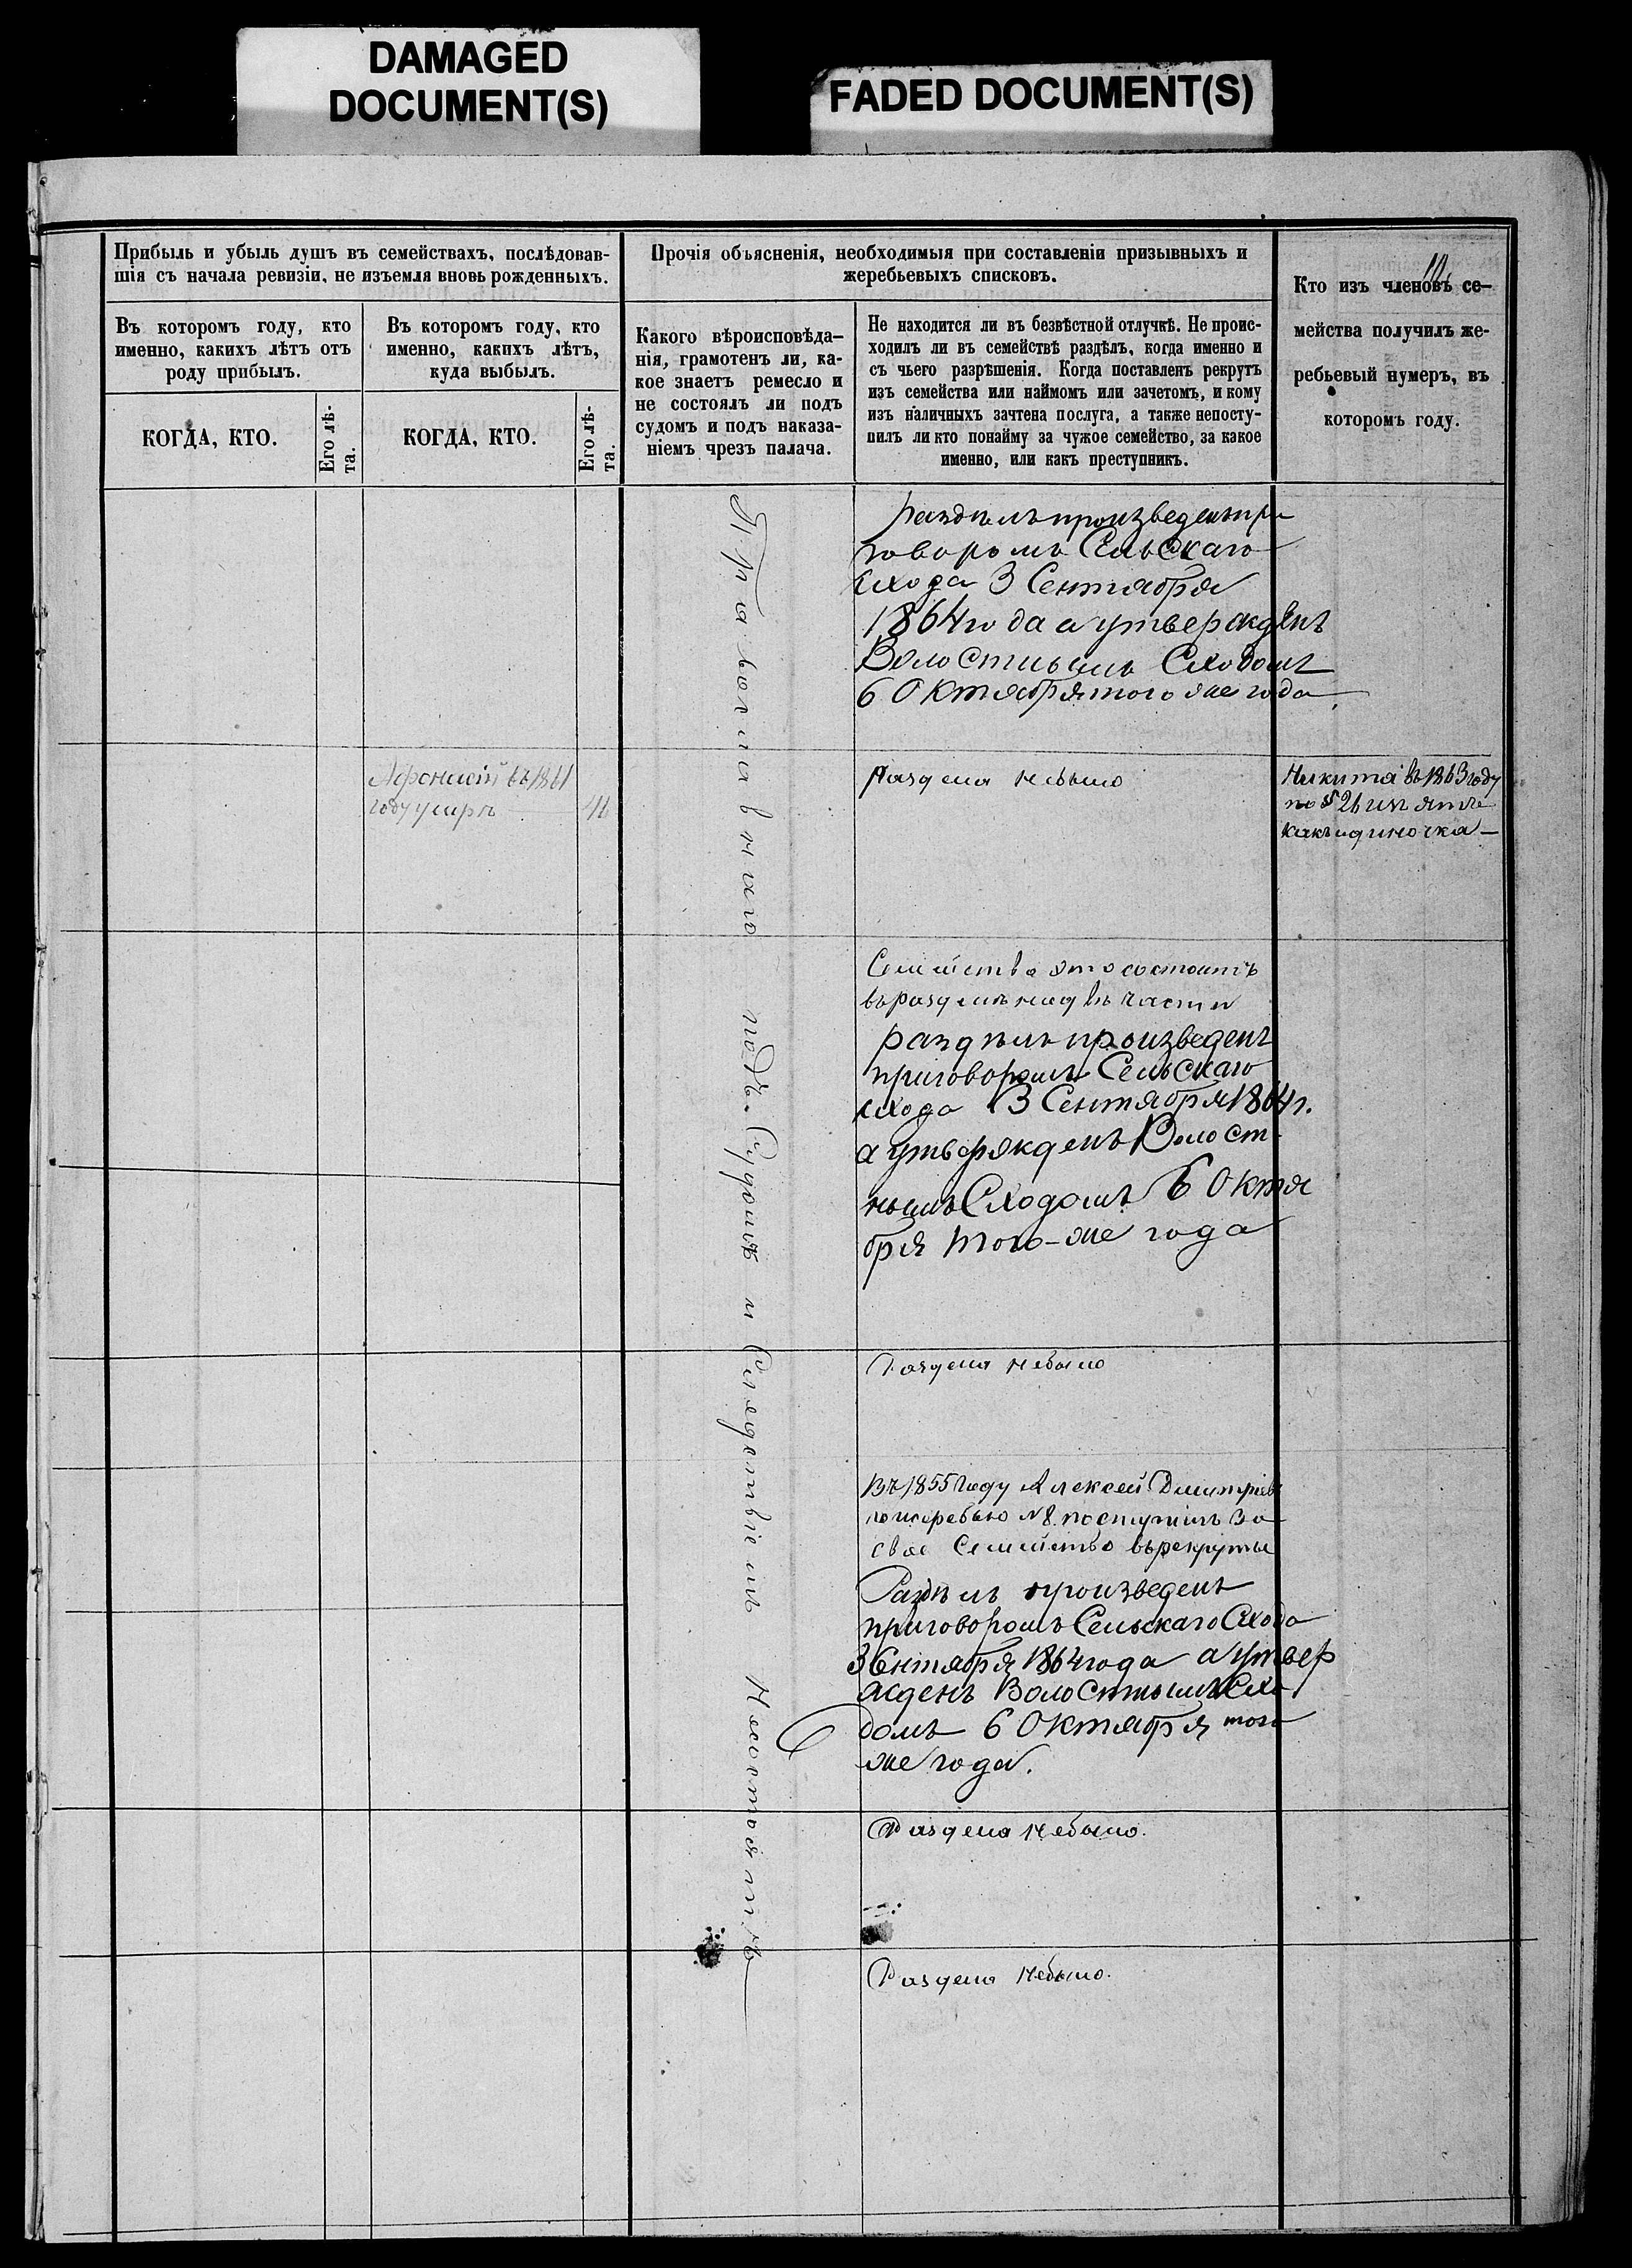 DAMAGED
DOCUMENT(S)
FADED DOCUMENT(S)
Прибыль и убыль душъ въ семействахъ, послѣдовав-
шія съ начала ревизіи, не изъемля вновь рожденныхъ.
Въ которомъ году, кто
именно, какихъ лѣтъ отъ
роду прибылъ.
Въ которомъ году, кто
именно, какихъ лѣтъ,
куда выбылъ.
КОГДА, КТО.
Его лѣ-
та.
КОГДА, КТО.
Его лѣ-
та.
Прочія объясненія, необходимыя при составленіи призывныхъ и
жеребьевыхъ списковъ.
Какого вѣроисповѣда-
нія, грамотенъ ли, ка-
кое знаетъ ремесло и
не состоялъ ли подъ
судомъ и подъ наказа-
ніемъ чрезъ палача.
Не находится ли въ безвѣстной отлучкѣ. Не проис-
ходилъ ли въ семействѣ раздѣлъ, когда именно и
съ чьего разрѣшенія. Когда поставленъ рекрутъ
изъ семейства или наймомъ или зачетомъ, и кому
изъ наличныхъ зачтена послуга, а также непосту-
пилъ ли кто понайму за чужое семейство, за какое
именно, или какъ преступникъ.
Кто изъ членовъ се-
мейства получилъ же-
ребьевый нумеръ, въ
которомъ году.
Православнаго подъ Судомъ и Следствіемъ Несостоятъ
раздѣлъ произведенъ при
говоромъ Сельскаго
схода 3 Сентября
1864 года а утвержденъ
Волостнымъ Сходомъ
6 Октября того же года
Афонасій въ 1861
году умеръ
Раздела небыло
Никита въ 1863 году
по § 26 изъятъ
какъ одиночка
Семейство это состоитъ
въ разделе на две части
раздѣлъ произведенъ
приговоромъ Сельскаго
схода 3 Сентября 1864 г.
а утвержденъ Волост
нымъ Сходомъ 6 Октя
бря того-же года
Раздела небыло
Въ 1855 году Алексей Дмитріевъ
по жеребью № 8. поступилъ за
свое Семейство в рекруты
Раздѣлъ произведенъ
приговоромъ Сельскаго Схода
3 Сентября 1864 года а утвер
жденъ Волостнымъ Схо
домъ 6 Октября того
же года.
Раздела небыло.
Раздела небыло.